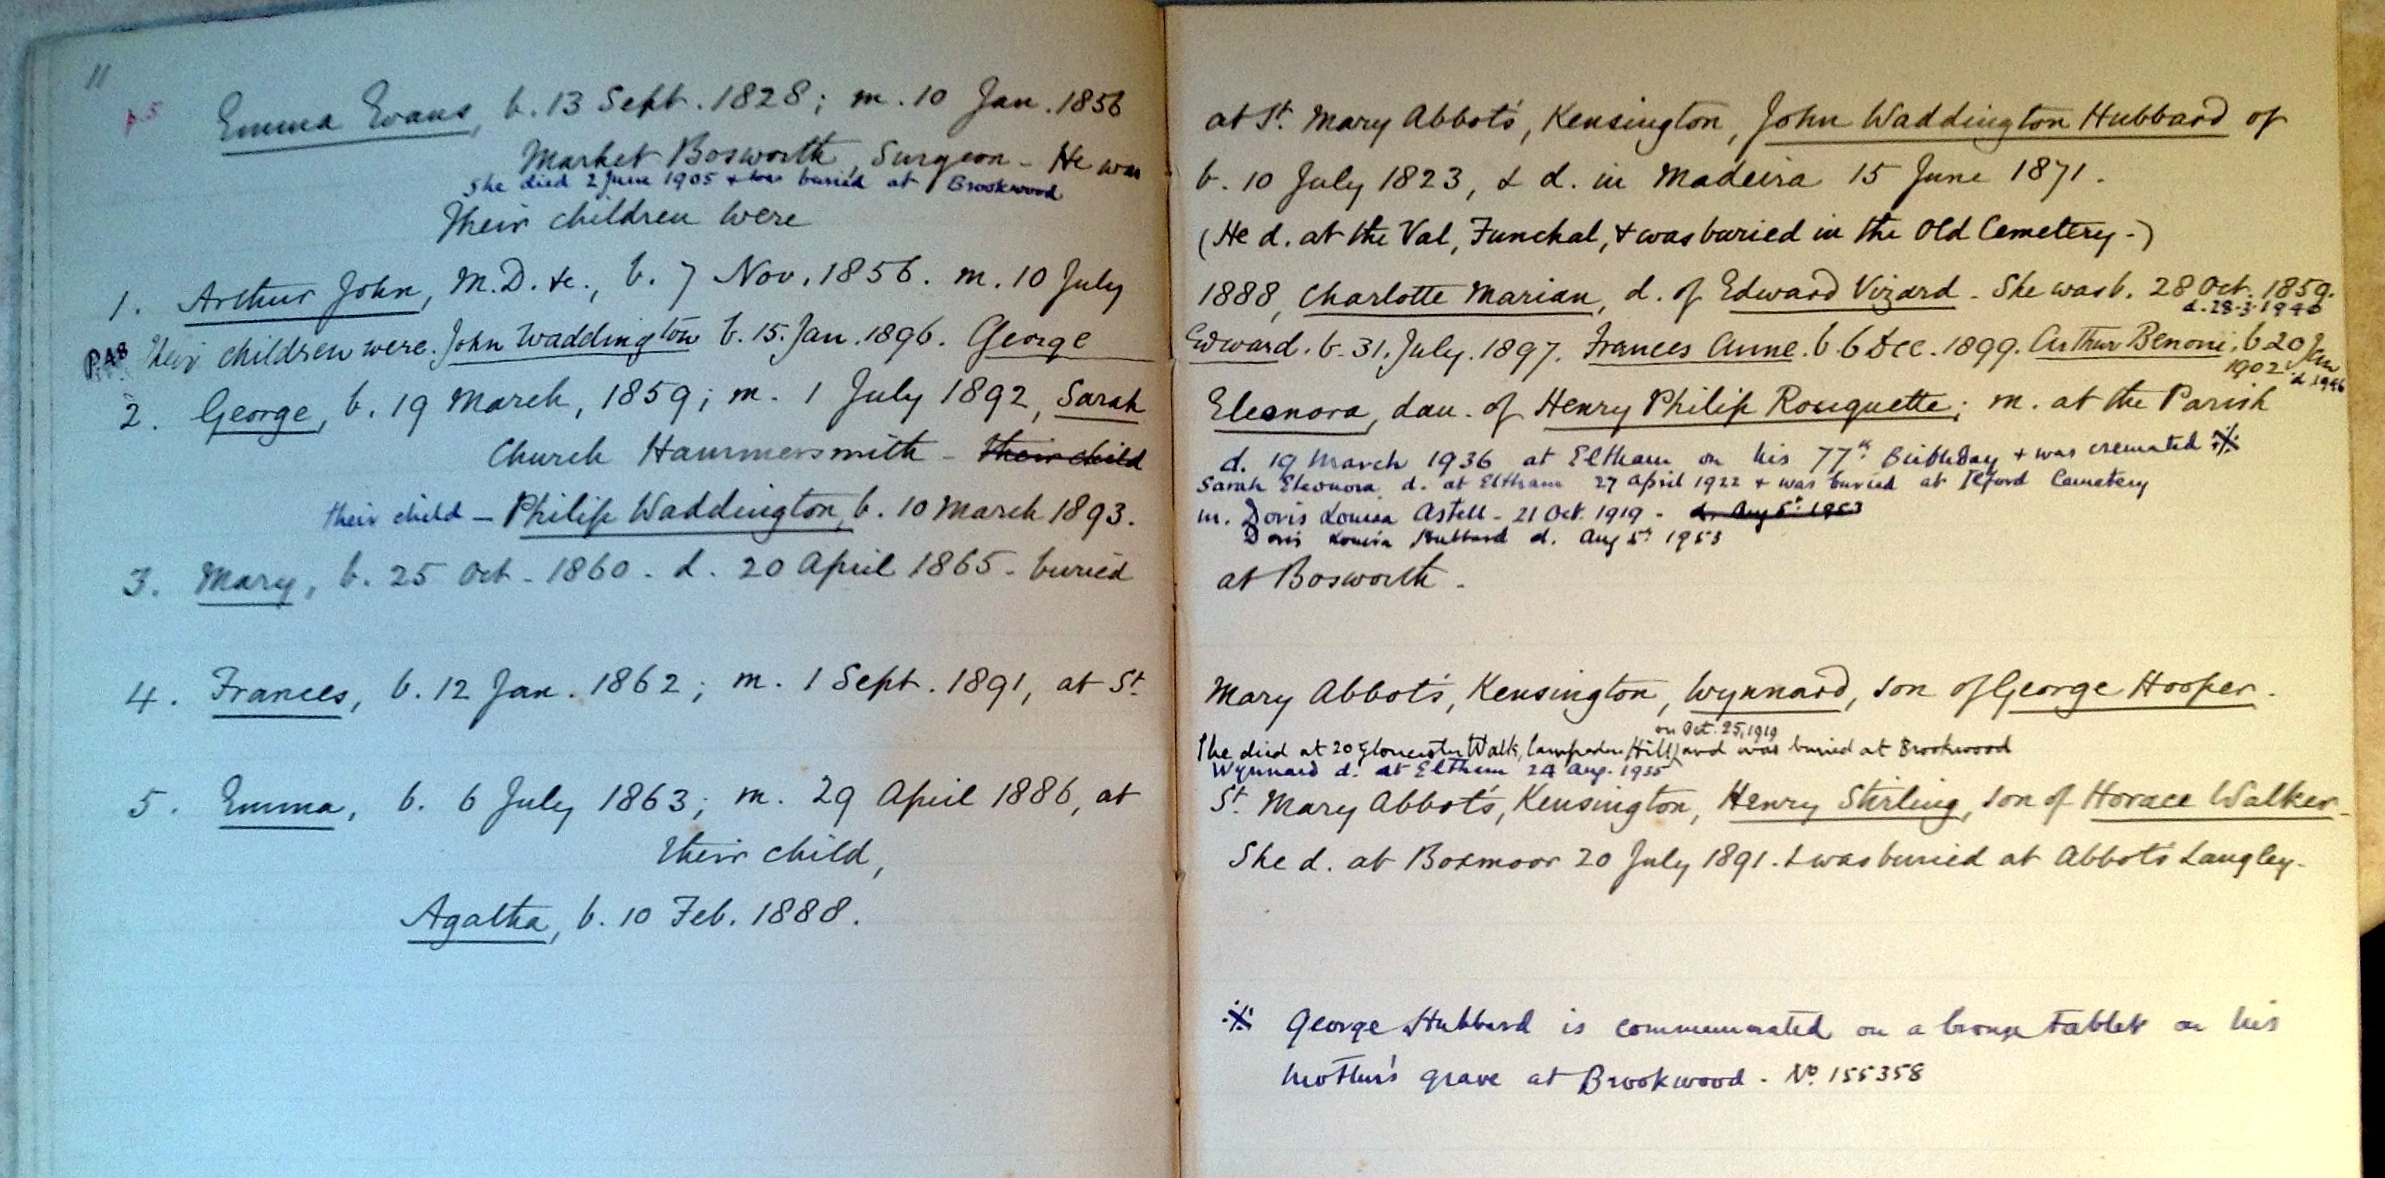 11
p.5
Emma Evans, b. 13 Sept. 1828; m. 10 Jan. 1856
Market Bosworth, Surgeon - He was
She died 2 June 1905 & was buried at Brookwood
Their children were
1. Arthur John, M.D. &c., b. 7 Nov. 1856. m. 10 July
P.48 Their children were. John Waddington b. 15. Jan. 1896. George
2. George, b. 19 March, 1859; m. 1 July 1892, Sarah
Church Hammersmith - their child
their child - Philip Waddington, b. 10 March 1893.
3. Mary, b. 25 Oct - 1860 - d. 20 April 1865 - buried
4. Frances, b. 12 Jan. 1862; m. 1 Sept. 1891, at St
5. Emma, b. 6 July 1863; m. 29 April 1886, at
Their child,
Agatha, b. 10 Feb. 1888.
at St. Mary Abbot's, Kensington, John Waddington Hubbard of
b. 10 July 1823, & d. in Madeira 15 June 1871.
(He d. at the Val, Funchal, & was buried in the Old Cemetery-)
1888, Charlotte Marian, d. of Edward Vizard - She was b. 28 Oct. 1859.
d. 28-3-1946
Edward. b. 31. July. 1897. Frances Anne. b. 6 Dec. 1899. Arthur Benoni, b. 20 Jan
1902. d. 1946
Eleonora, dau. of Henry Philip Rouquette; m. at the Parish
d. 19 March 1936 at Eltham on his 77th Birthday & was cremated ※
Sarah Eleonora d. at Eltham 27 April 1922 & was buried at Ilford Cemetery
m. Doris Louisa Astell - 21 Oct. 1919 - d. Aug 5th 1953
Doris Louisa Hubbard d. Aug 5th 1953
at Bosworth -
Mary Abbot's, Kensington, Wynnard, son of George Hooper.
on Oct. 25, 1919
She died at 20 Gloucester Walk, Campden Hill, and was buried at Brookwood
Wynnard d. at Eltham 24 Aug. 1935
St. Mary Abbot's, Kensington, Henry Stirling, son of Horace Walker -
She d. at Boxmoor 20 July 1891. & was buried at Abbot's Langley-
※ George Hubbard is commemorated on a bronze tablet on his
mother's grave at Brookwood - No. 155358